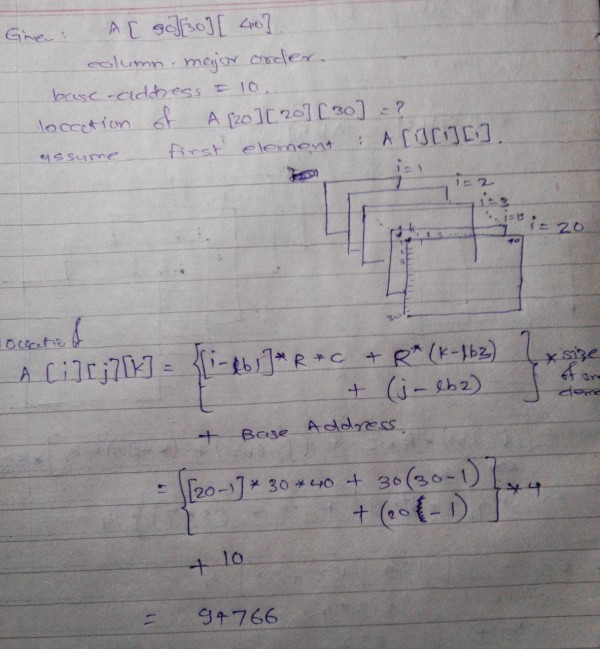 Given: A[ 90][30][ 40]
column-major order.
base-address = 10.
location of A[20][20][30] = ?
assume first element : A[1][1][1].
i=1
i=2
i=3
i = 20
40
Location of
A [i][j][k] = {[i-lb1]*R*C + R*(k-lb3)
+ (j-lb2)} * size
of one
eleme
+ Base Address.
= {[20-1]*30*40 + 30(30-1)
+ (20-1)} * 4
+ 10
= 94766